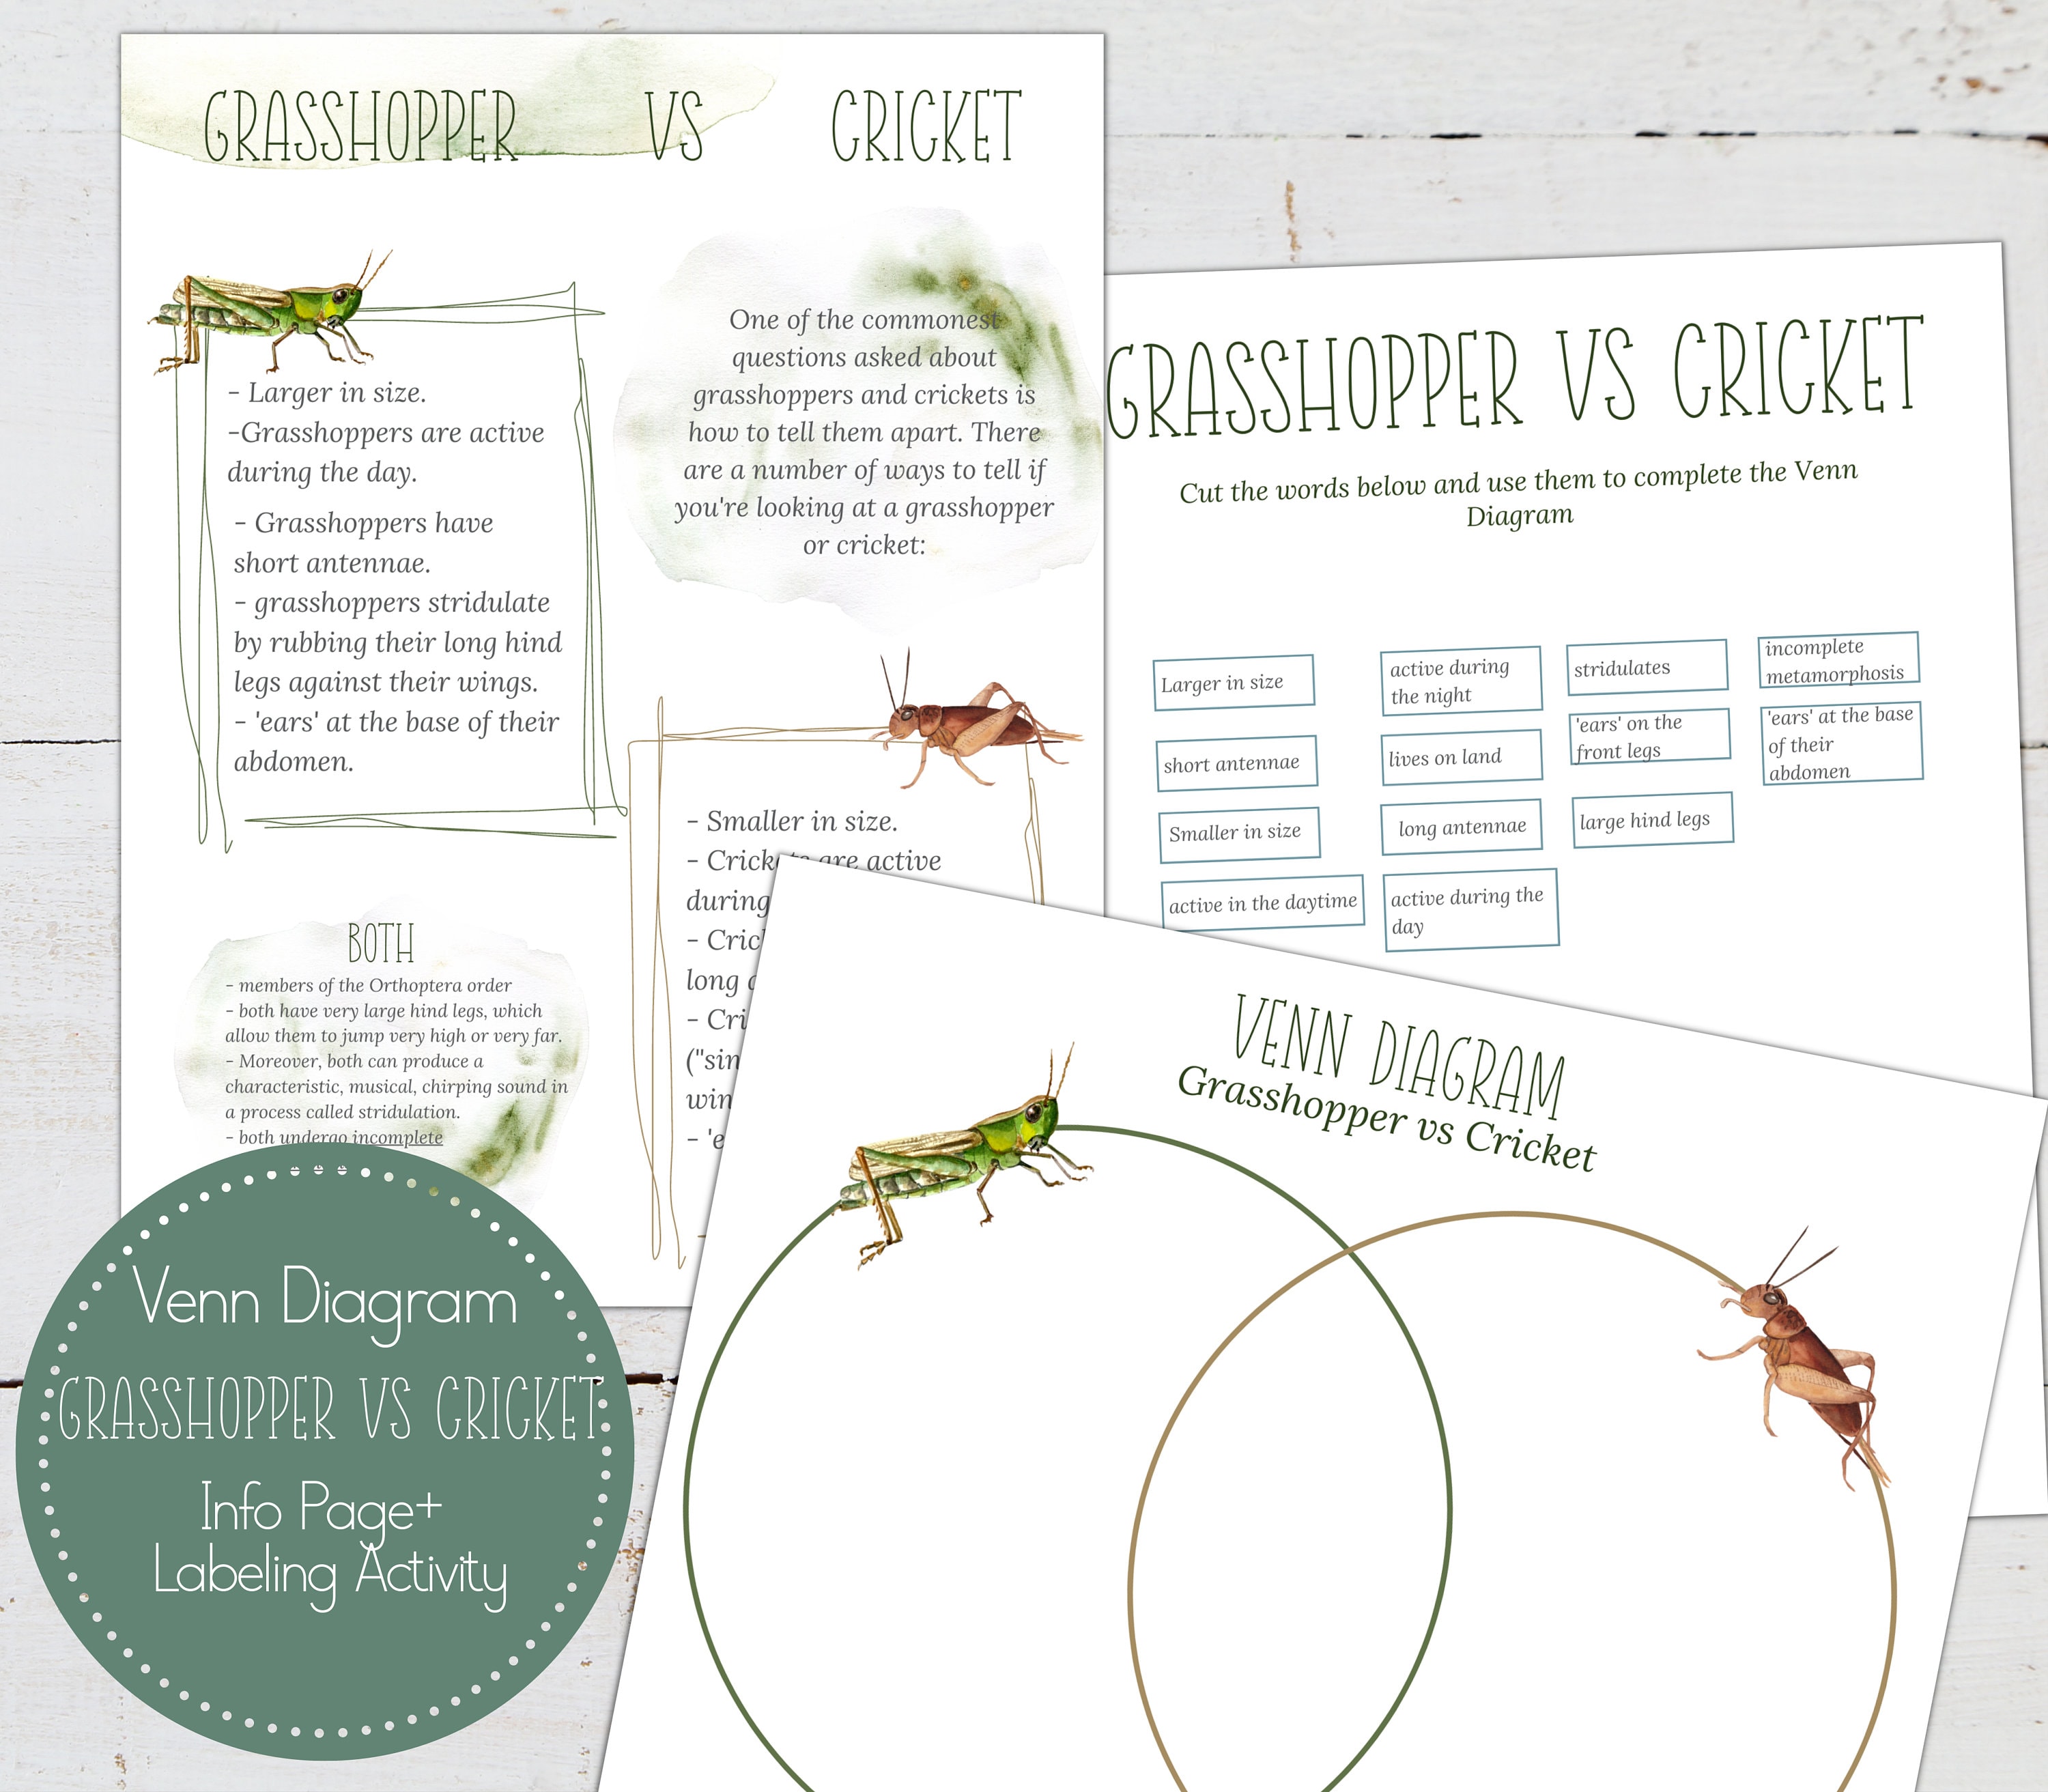 GRASSHOPPER VS CRICKET
- Larger in size.
-Grasshoppers are active
during the day.
- Grasshoppers have
short antennae.
- grasshoppers stridulate
by rubbing their long hind
legs against their wings.
- 'ears' at the base of their
abdomen.
One of the commonest
questions asked about
grasshoppers and crickets is
how to tell them apart. There
are a number of ways to tell if
you're looking at a grasshopper
or cricket:
- Smaller in size.
- Crickets are active
during
-
long
-
-
BOTH
- members of the Orthoptera order
- both have very large hind legs, which
allow them to jump very high or very far.
- Moreover, both can produce a
characteristic, musical, chirping sound in
a process called stridulation.
- both undergo incomplete
GRASSHOPPER VS CRICKET
Cut the words below and use them to complete the Venn
Diagram
Larger in size
short antennae
Smaller in size
active in the daytime
active during
the night
lives on land
long antennae
active during the
day
stridulates
'ears' on the
front legs
large hind legs
incomplete
metamorphosis
'ears' at the base
of their
abdomen
VENN DIAGRAM
Grasshopper vs Cricket
Venn Diagram
GRASSHOPPER VS CRICKET
Info Page+
Labeling Activity